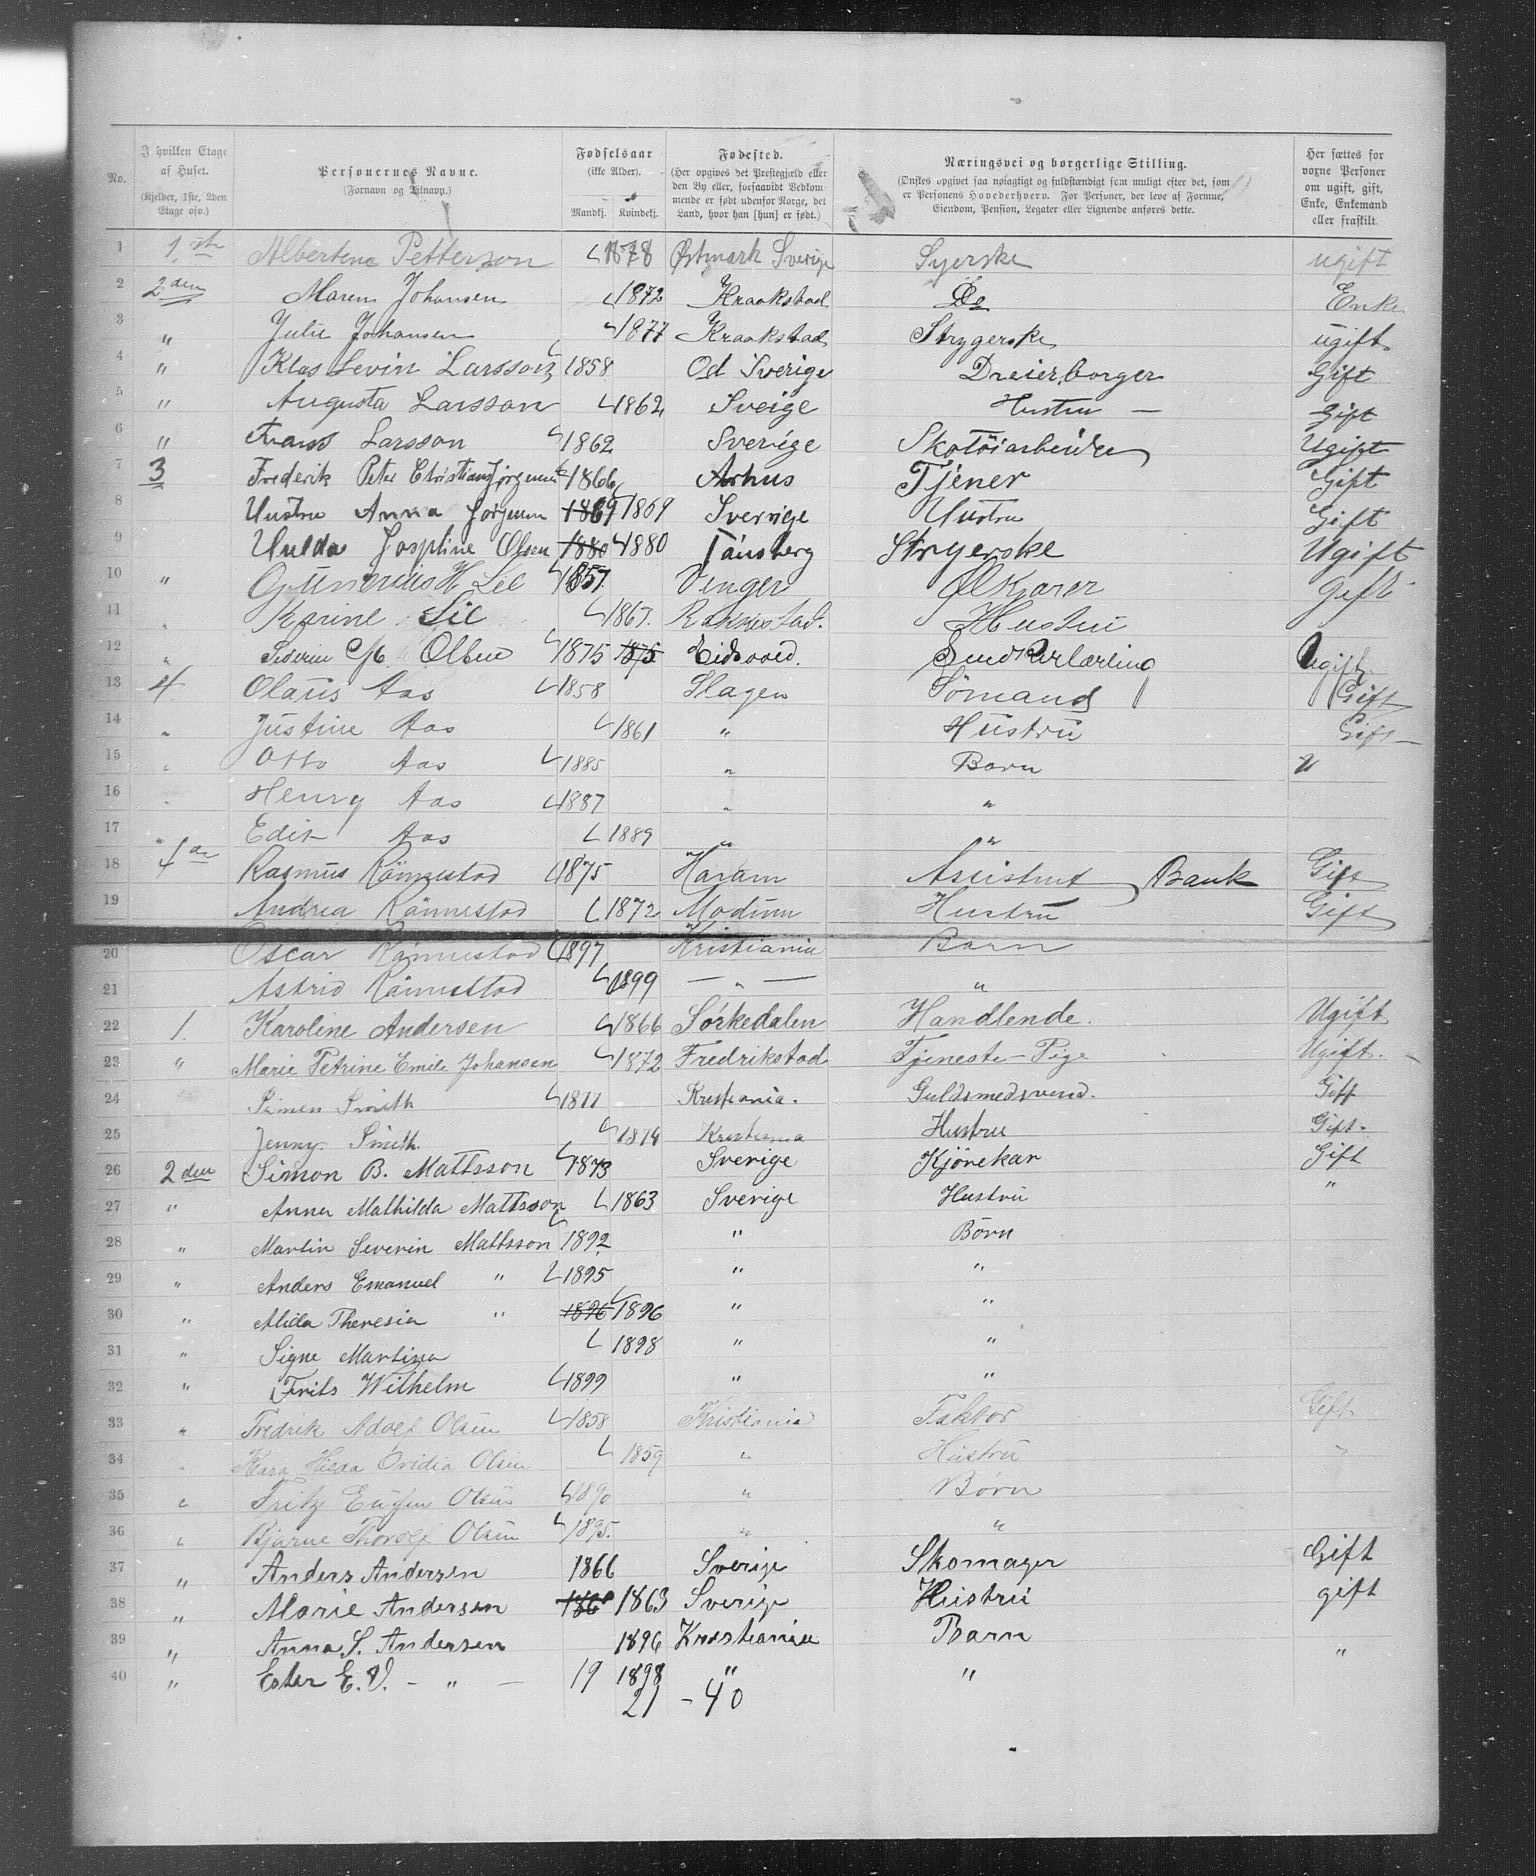 No.
I hvilken Etage af Huset. (Kjelder, 1ste, 2den Etage osv.)
Personernes Navne. (Fornavn og Tilnavn.)
Fødselsaar (ikke Alder). Mandkj. Kvindekj.
Fødested. (Her opgives det Prestegjæld eller den By eller, forsaavidt Vedkommende er født udenfor Norge, det Land, hvor han [hun] er født.)
Næringsvei og borgerlige Stilling. (Ønskes opgivet saa nøiagtigt og fuldstændigt som muligt efter det, som er Personens Hovederhverv. For Personer, der leve af Formue, Eiendom, Pension, Legater eller Lignende anføres dette.
Her sættes for vorne Personer om ugift, gift, Enke, Enkemand eller fraskilt.
1 1.ste Albertene Petterson 1878 Østmark Sverige Syerske ugift
2 2den Maren Johansen 1872 Kraakstad Do Enke
3 " Julie Johansen 1877 Kraakstad Strygerske ugift
4 " Klas Levin Larsson 1858 Od Sverige Dreier, borger Gift
5 " Augusta Larsson 1862 Sveige Hustru — gift
6 " Frans Larsson 1862 Sverige Skotöiarbeider Ugift
7 3 Frederik Peter Christians Jørgensen 1866 Arhus Tjener Gift
8 Hustru Anna Jørgensen 1869 1869 Sverige Hustru Gift
9 Hulda Josphine Olsen 1880 1880 Tønsberg Strygerske Ugift
10 " Gunerius H Lie 1857 Vinger Ølkjører gift
11 " Karine Lie 1867. Rakkestad. Hustru
12 " Olsen 1875 1875 Eidsvold. Ugift
13 4 Olaüs Aas 1858 Slagen Sømand Gift
14 " Justine Aas 1861 " Hustrü Gift
15 " Otto Aas 1885 " Barn U
16 " Henry Aas 1887 " "
17 " Edit Aas 1889 " "
18 4de Rasmüs Rönnestad 1875 Haram Assistent Bank Gift
19 Andrea Rönnestad 1872 Modum Hustrü Gift
20 Oscar Rönnestad 1897 Kristiania Barn
21 Astrid Rönnestad 1899 — " — "
22 1. Karoline Andersen 1866 Sörkedalen Handlende. Ugift
23 " Marie Petrine Emile Johansen 1872 Fredrikstad Tjeneste-Pige Ugift.
24 Simen Smith 1877 Kristiania. Guldsmedsvend. Gift
25 Jenny Smith. 1874 Kristiania Hustru Gift.
26 2den Simon B. Mattsson 1873 Sverige Kjörekar Gift
27 " Anna Mathilda Mattsson 1863 Sverige Hustru "
28 " Martin Severin Mattsson 1892 " Börn
29 " Anders Emanuel " 1895 " "
30 " Alida Theresia " 1896 1896 " "
31 " Signe Martina 1898 " "
32 " Frits Wilhelm 1899 " "
33 " Fredrik Adolf Olsen 1858 Kristiania Faktor Gift
34 " Hilda Ovidia Olsen 1859 " Hustrü "
35 " Fritz Eugen Olsen 1890 " Börn
36 " Bjarne Thorolf Olsen 1895. " "
37 " Anders Andersen 1866 Sverige Skomager Gift
38 " Marie Andersen 1863 Sverige Hüstrü gift
39 " Anna S. Andersen 1896 Kristiania Barn "
40 " Ester E. V. — " — 1898 " "
19 21 - 40